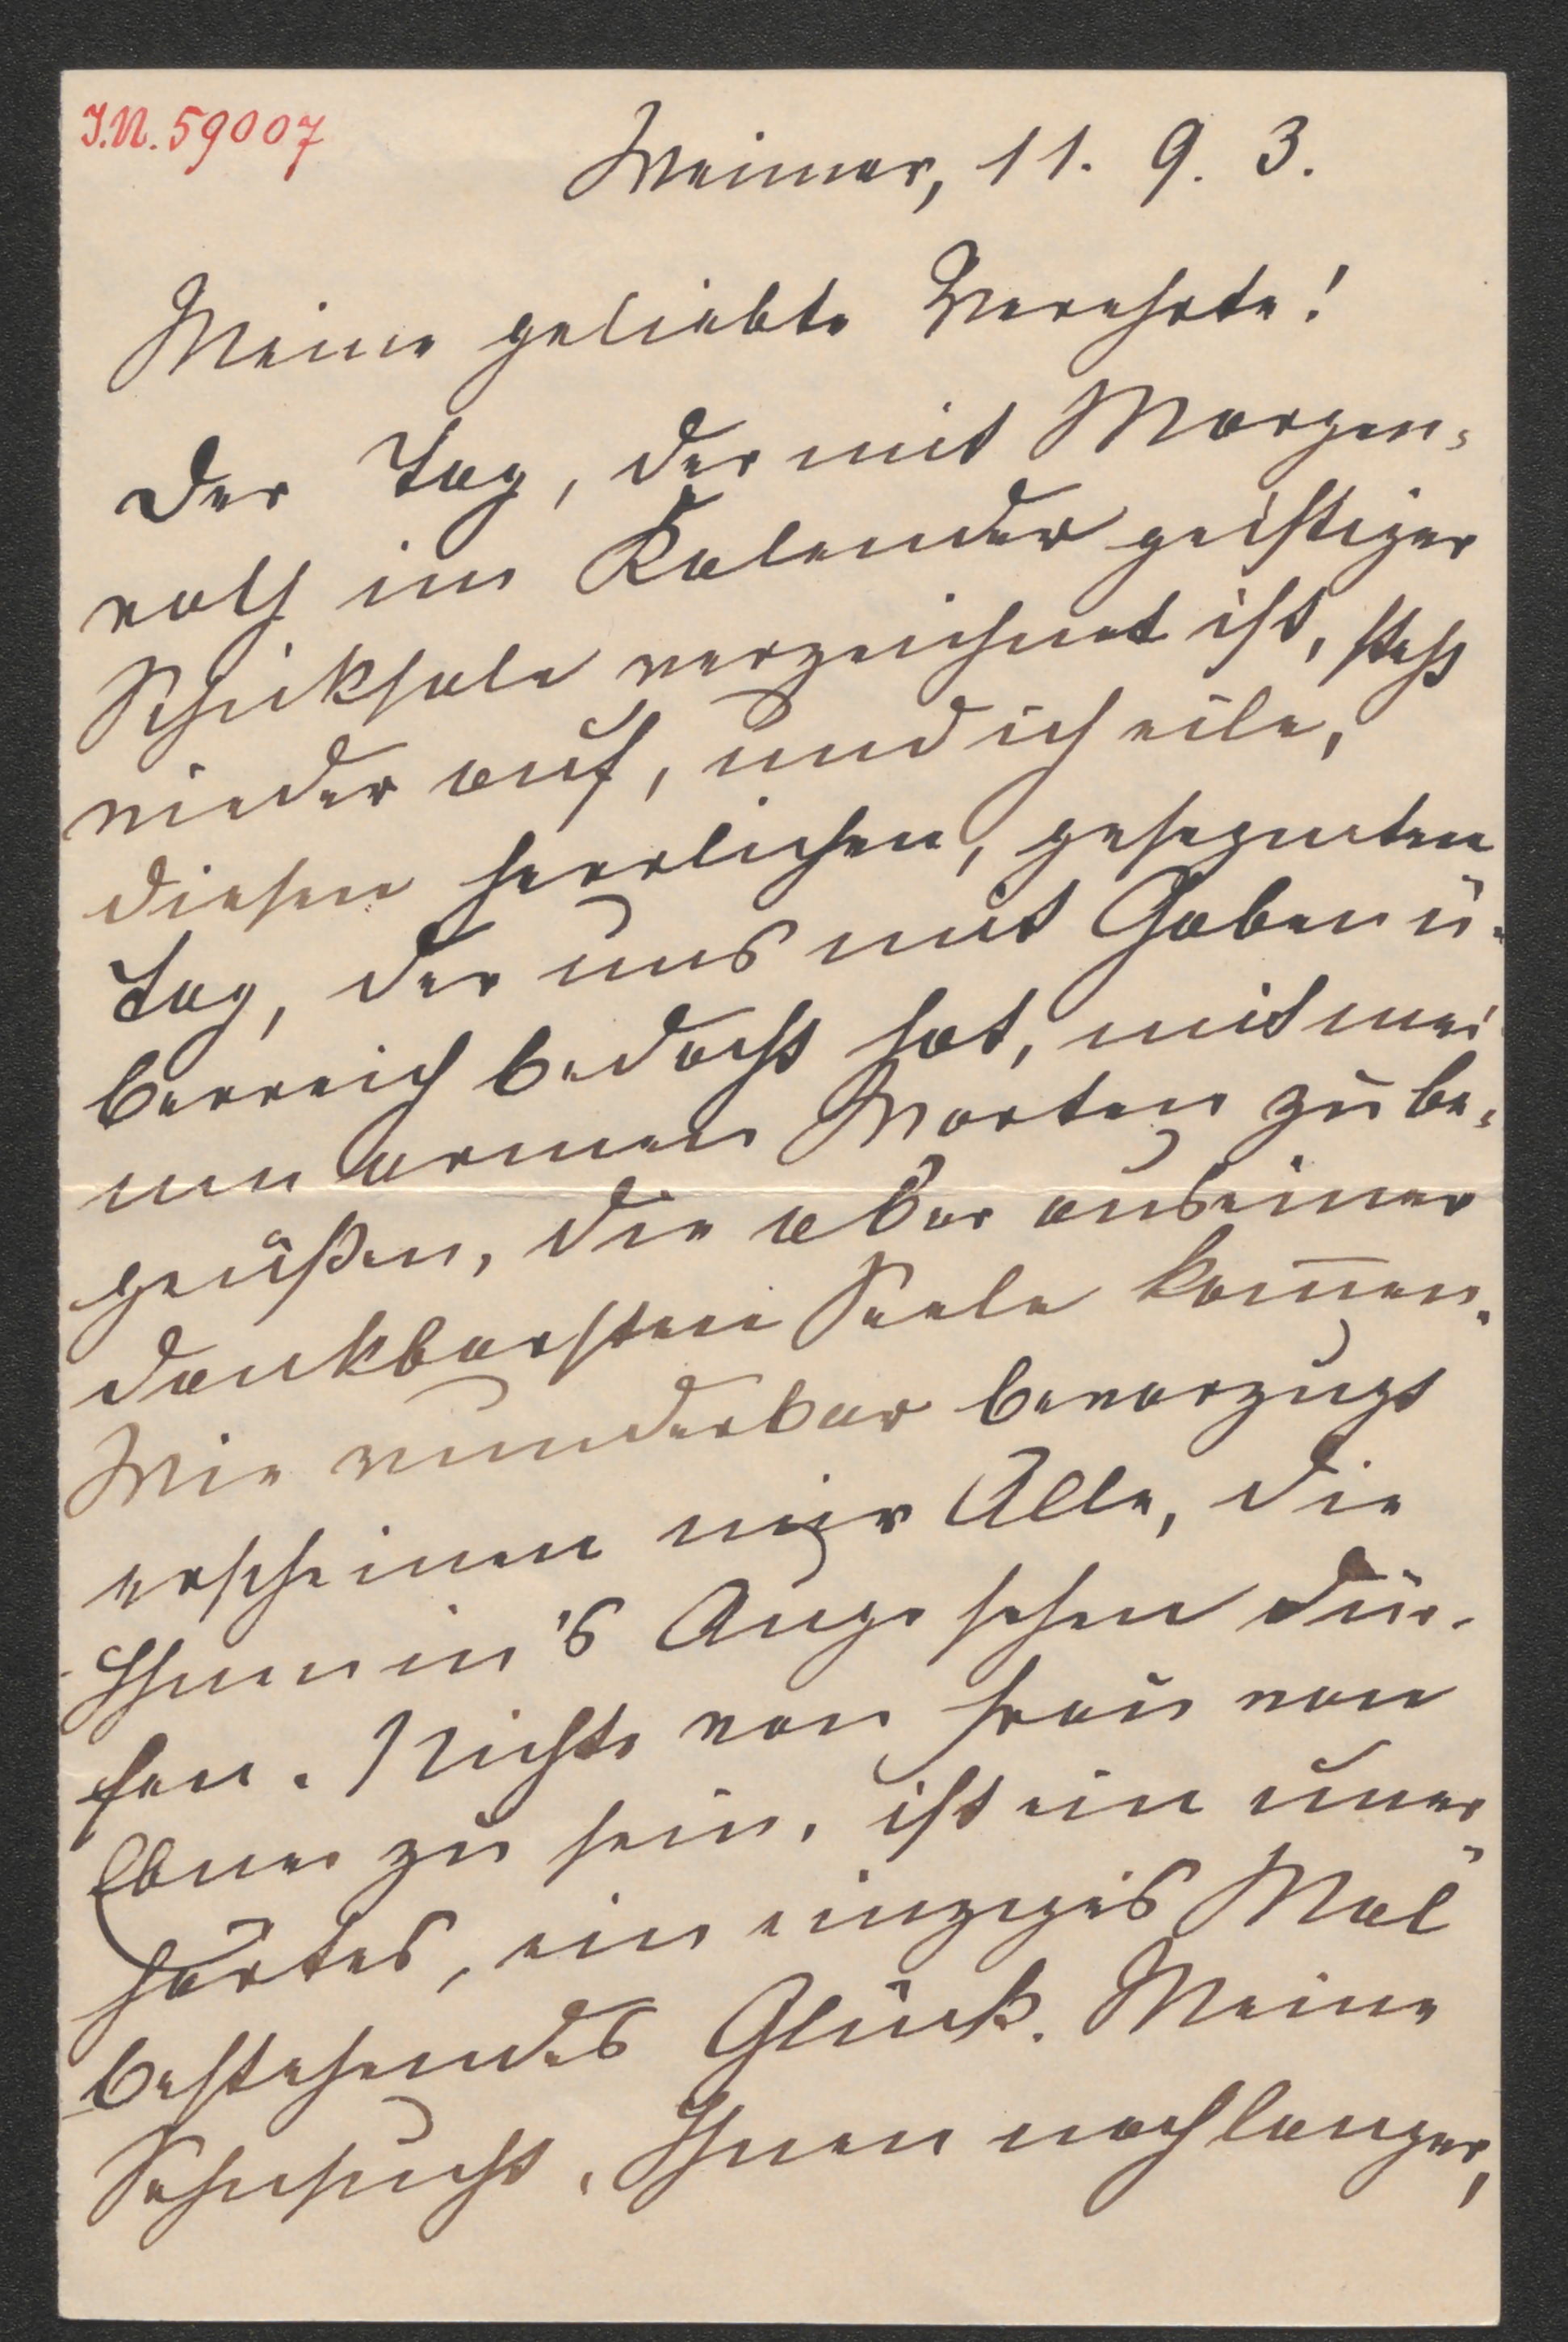 J.N. 59007
Weimar, 11. 9. 3.
Meine geliebte Verehrte!
Der Tag, der mit Morgen-
roth im Kalender geistiger
Schicksale verzeichnet ist, steht
wieder auf, und ich eile,
diesen herrlichen, gesegneten
Tag, der uns mit Gaben ü-
berreich bedacht hat, mit mei
nen armen Worten zu be-
grüßen, die aber aus einer
dankbarsten Seele kom̅en.
Wie wunderbar bevorzugt
erscheinen mir Alle, die
Ihnen in's Auge sehen dür-
fen. Nichte von Frau von
Ebner zu sein, ist ein uner
hörtes, ein einziges Mal
bestehendes Glück. Meine
Sehnsucht, Ihnen nach langer,